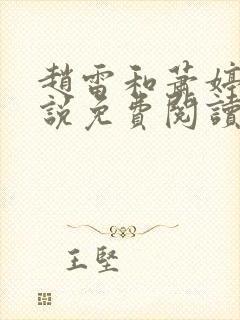 趙雷和蕭婷
説免費閱讀
王堅